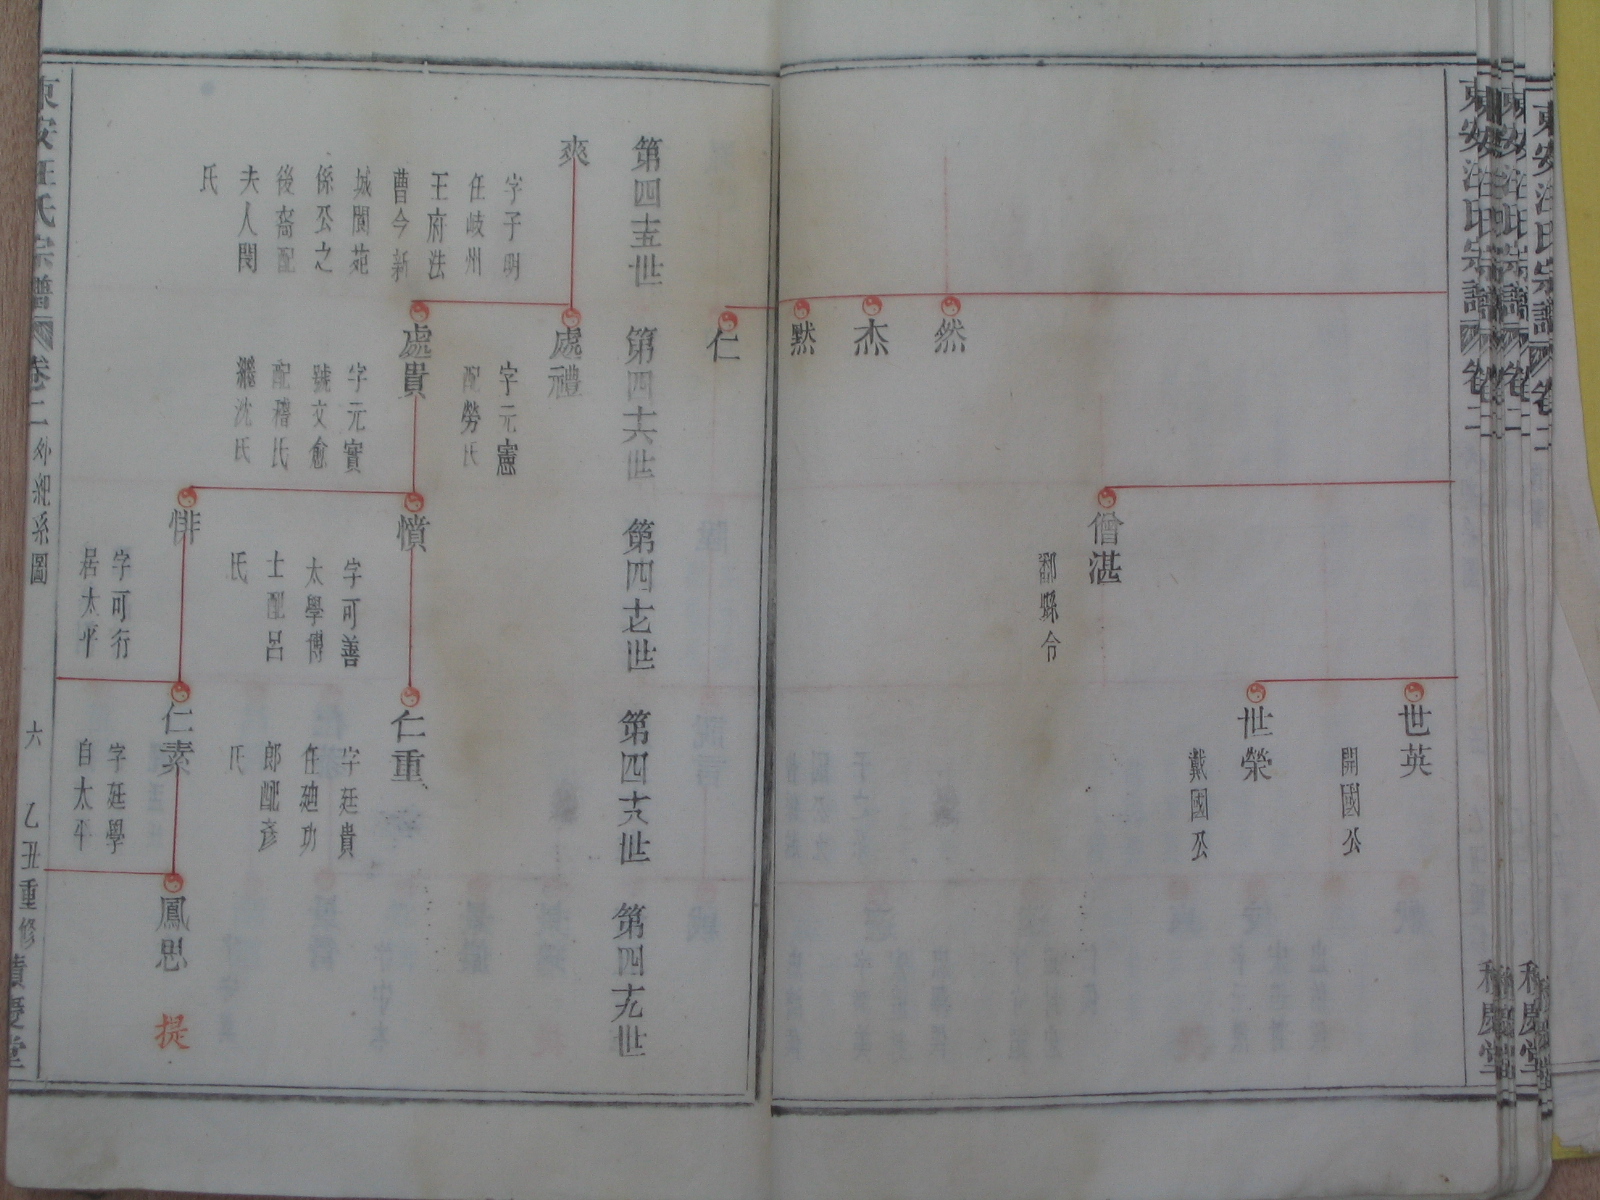 東安汪氏宗譜
卷二
積慶堂
然
杰
默
仁
僧湛
鄱縣令
世英
開國公
世榮
戴國公
第四十五世
第四十六世
第四十七世
第四十八世
第四十九世
爽
字子明
任岐州
王府法
曹今新
城閬苑
係公之
後裔配
夫人閔
氏
處禮
字元憲
配勞氏
處貴
字元實
號文愈
配稽氏
繼沈氏
憤
字可善
太學博
士配呂
氏
悱
字可行
居太平
仁重
字廷貴
任廸功
郎配彥
氏
仁素
字廷學
自太平
鳳思
提
東安汪氏宗譜
卷二
外紀系圖
六
乙丑重修
積慶堂